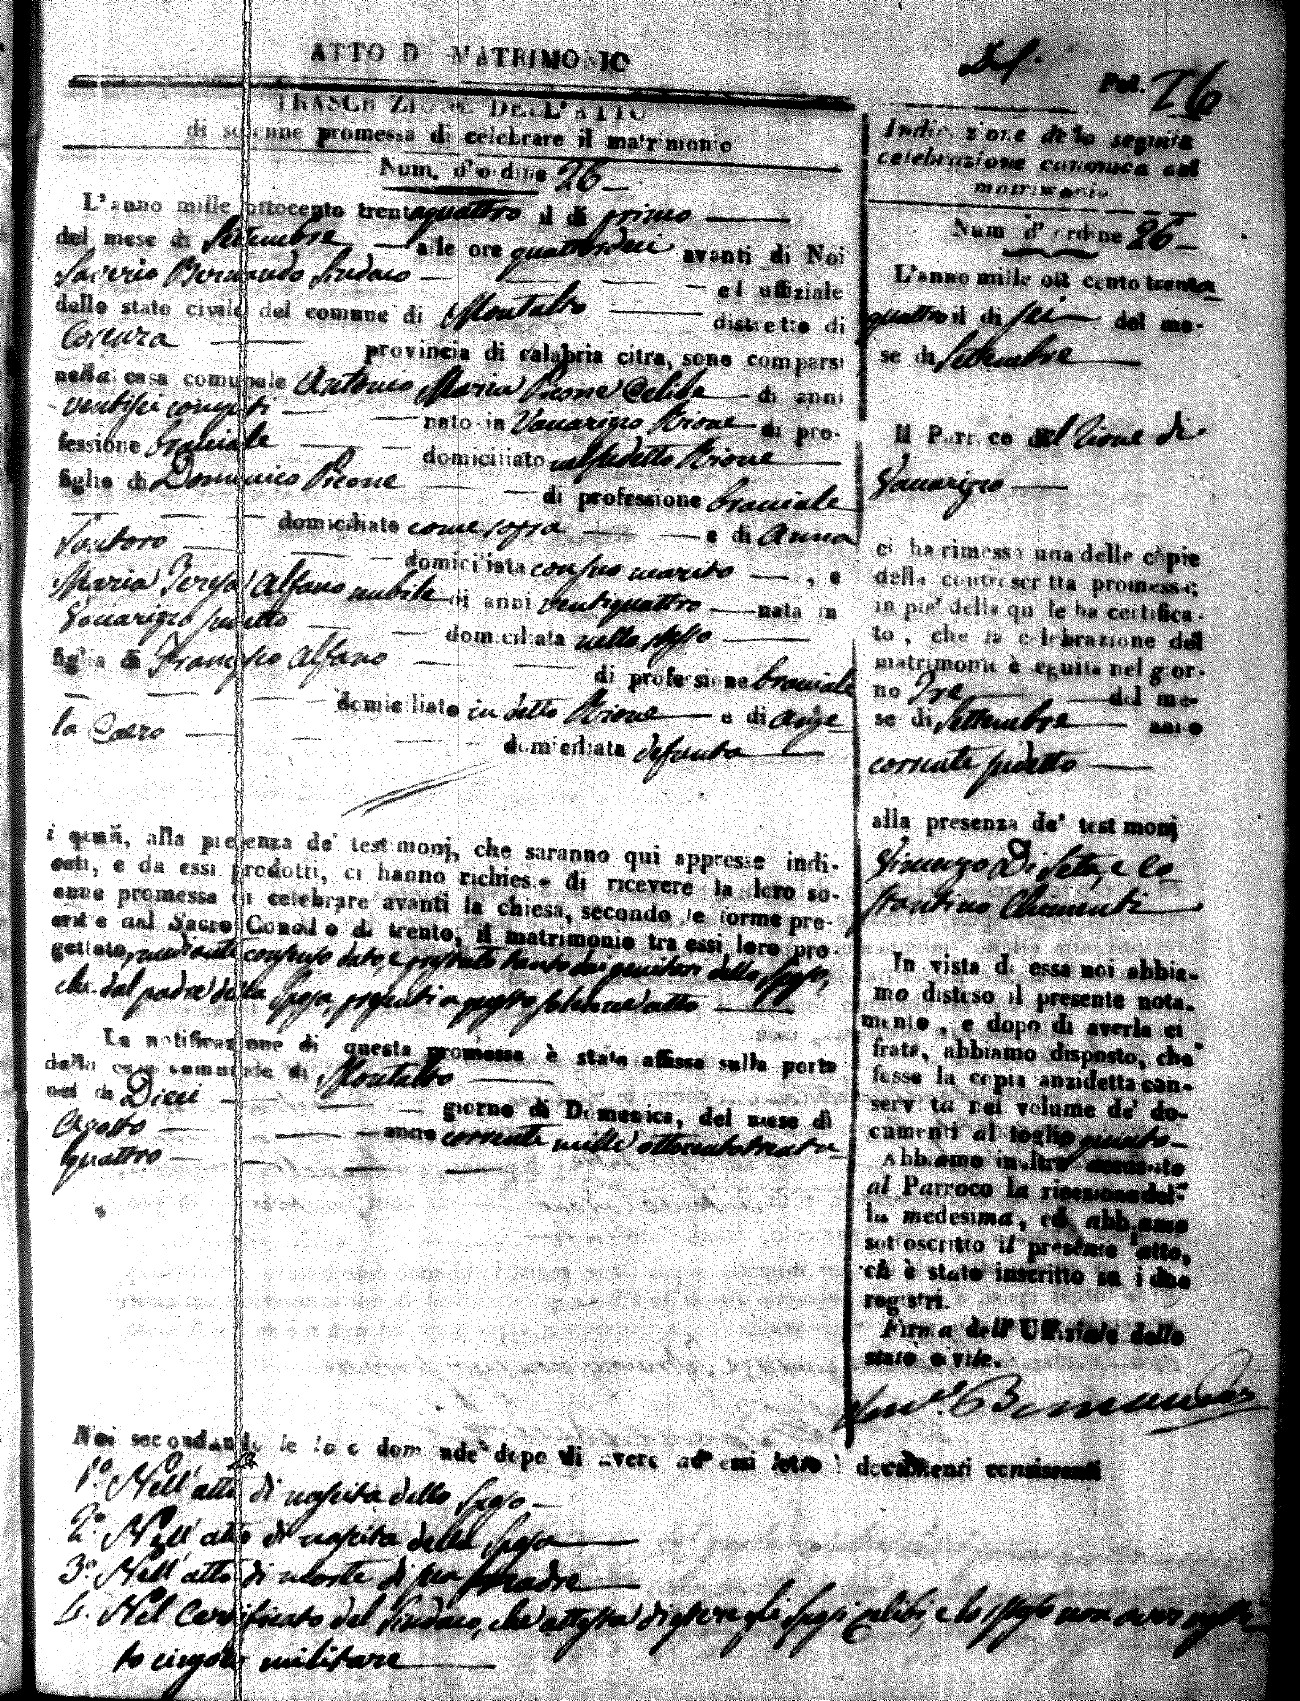 ATTO DI MATRIMONIO
Fol. 76
TRASCRIZIONE DELL'ATTO
di solenne promessa di celebrare il matrimonio
Num. d'ordine 26
L'anno mille ottocento trentaquattro il dì primo
del mese di Settembre alle ore quattordeci avanti di Noi
Saverio Bernaudo Sindaco ed uffiziale
dello stato civile del comune di Montalto distretto di
Cosenza provincia di calabria citra, sono comparsi
nella casa comunale Antonio Maria Picone Celibe di anni
ventisei compiti nato in Vaccarizzo Rione di pro-
fessione bracciale domiciliato nel sudetto Rione
figlio di Domenico Picone di professione bracciale
domiciliato come sopra e di Anna
Santoro domiciliata con suo marito , e
Maria Teresa Alfano nubile di anni ventiquattro nata in
Vaccarizzo sudetto domiciliata nello stesso
figlia di Francesco Alfano di professione bracciale
domiciliato in detto Rione e di Ange
la domiciliata defunta
i quali, alla presenza de' testimonj, che saranno qui appresso indi-
cati, e da essi prodotti, ci hanno richiesto di ricevere la loro so-
lenne promessa di celebrare avanti la chiesa, secondo le forme pre-
scritte dal Sacro Concilio di trento, il matrimonio tra essi loro pro-
gettato, mediante consenso dato, e prestato tanto dai genitori dello Sposo,
che dal padre della Sposa, presenti a questo solenne atto
La notificazione di questa promessa è stata affissa sulla porta
della casa comunale di Montalto
nel dì Dieci giorno di Domenica, del mese di
Agosto anno corrente mille ottocentotrenta
quattro
Noi secondando le loro domande dopo di avere ad essi letto i documenti consistenti
1.° Nell'atto di nascita dello Sposo
2.° Nell'atto di nascita della Sposa
3.° Nell'atto di morte di sua madre
4. Nel Certificato del Sindaco, che attesta di essere gli sposi celibi, e lo sposo non aver
to cingolo militare
Indicazione della seguita
celebrazione canonica del
matrimonio
Num d'ordine 26
L'anno mille ottocento trenta
quattro il dì sei del me-
se di Settembre
Il Parroco del Rione di
Vaccarizzo
ci ha rimessa una delle copie
della controscritta promessa;
in piè della quale ha certifica-
to, che la celebrazione del
matrimonio è seguita nel gior-
no Tre del me-
se di Settembre anno
corrente sudetto
alla presenza de' testimonj
Vincenzo Di Seta, e Co
stantino Chimenti
In vista di essa noi abbia-
mo disteso il presente nota-
mento, e dopo di averla ci
frata, abbiamo disposto, che
fosse la copia anzidetta con-
servata nel volume de' do-
cumenti al foglio
Abbiamo inoltre accusato
al Parroco la ricezione del-
la medesima, ed abbiamo
sottoscritto il presente atto,
ch' è stato inscritto su i due
registri.
Firma dell'Uffiziale dello
stato civile.
Sav. Bernaudo